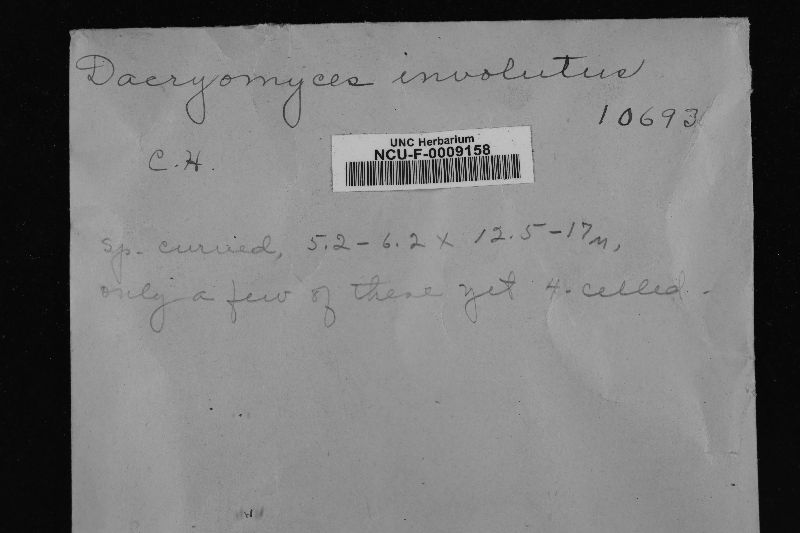 Dacryomyces involutus
10693
C.H.
UNC Herbarium
NCU-F-0009158
Sp. curved, 5.2-6.2 x 12.5-17µ,
only a few of these yet 4-celled-